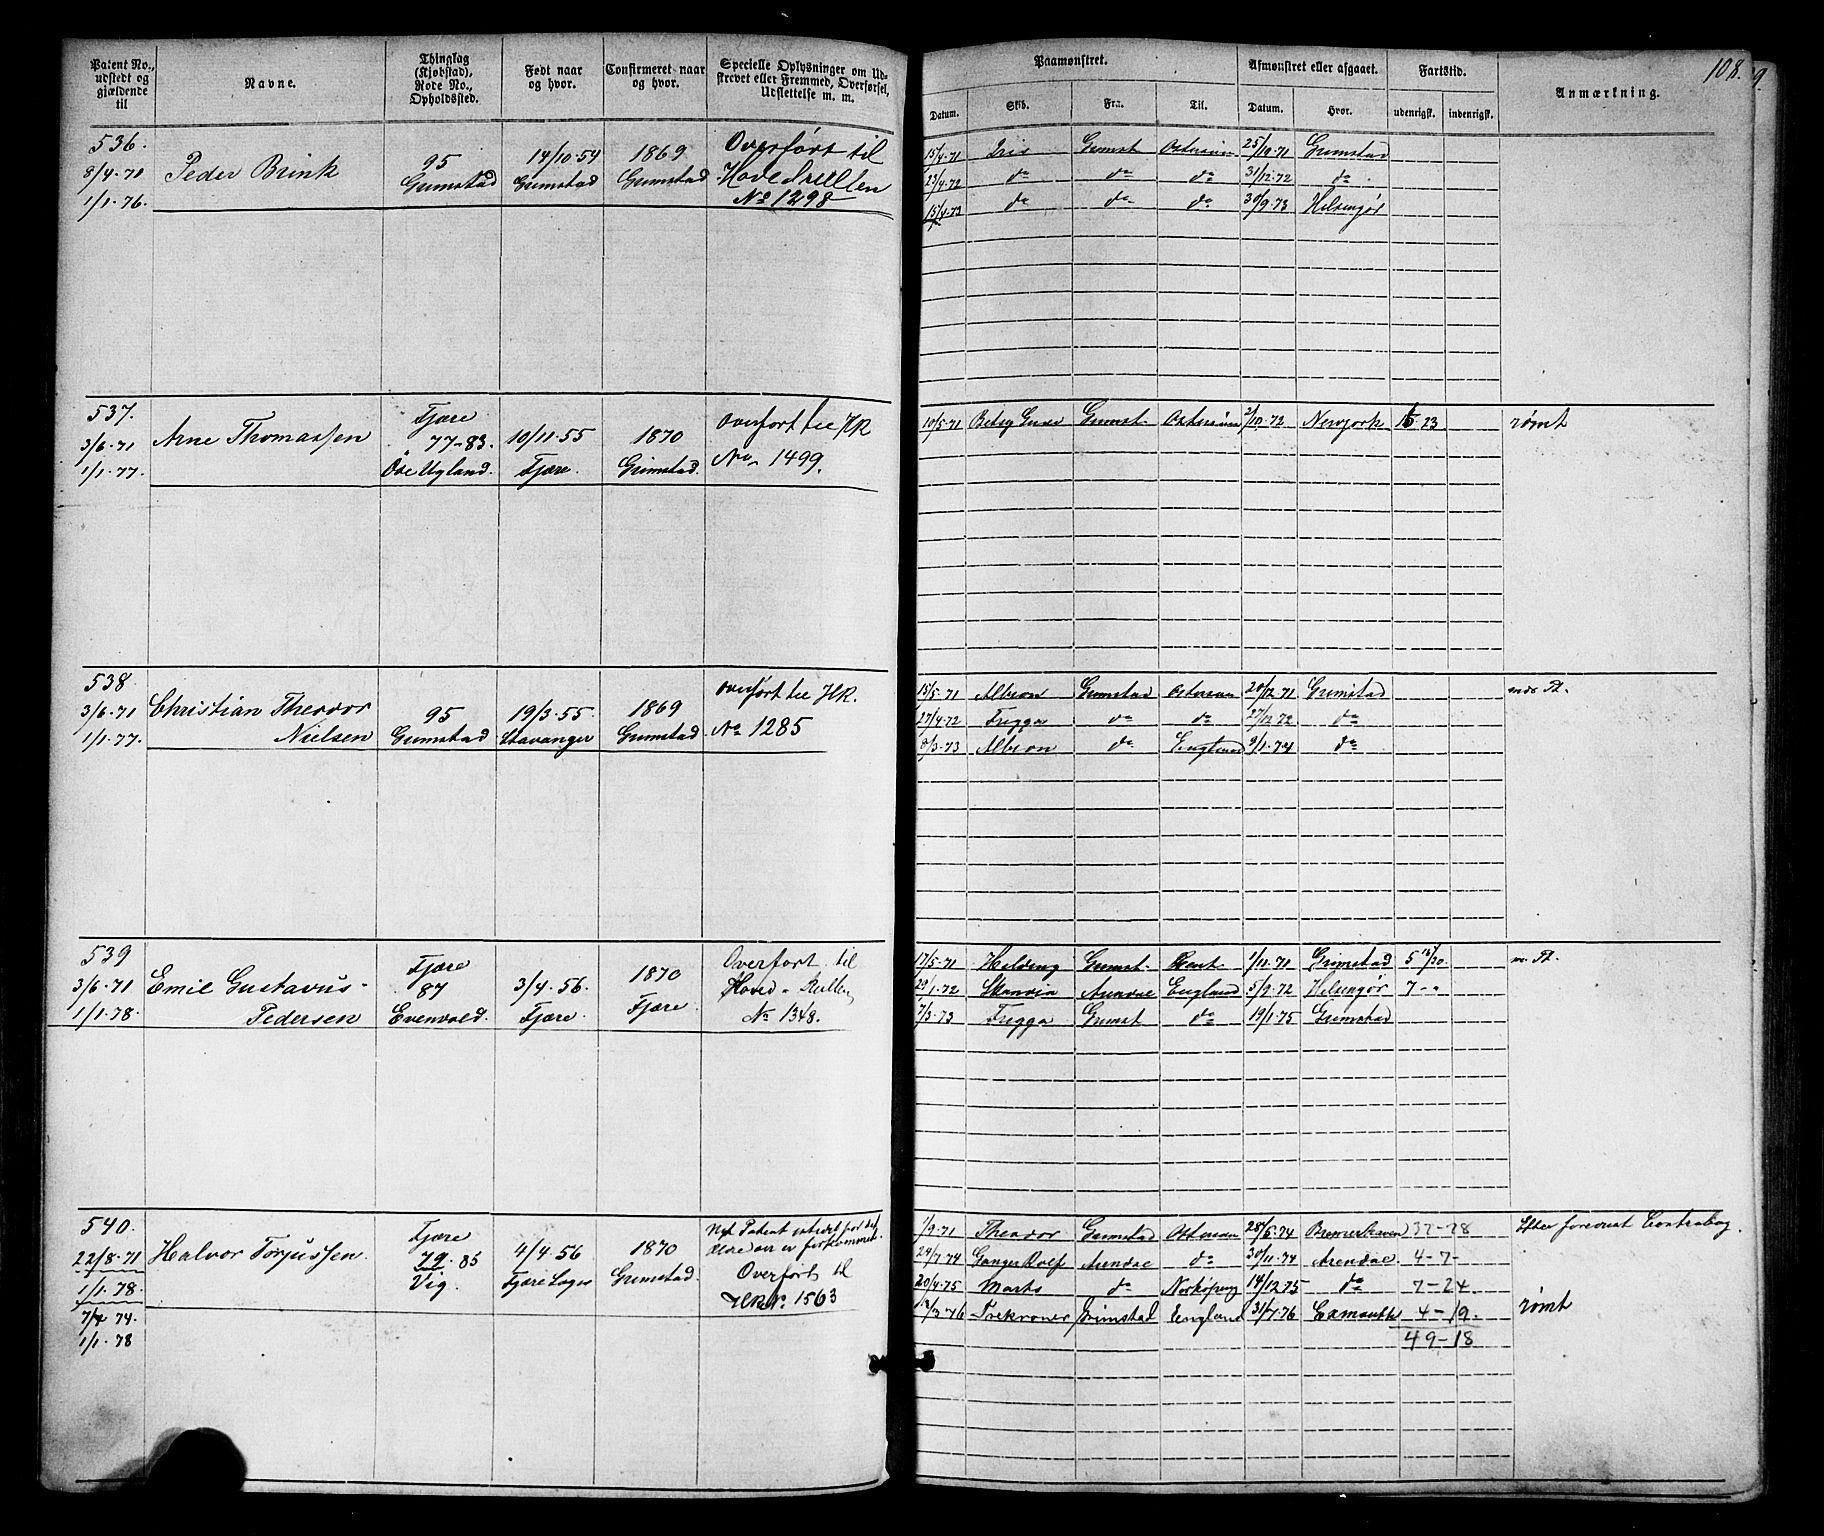 Patent No., udstedt og gjældende til
Navne.
Thinglag (Kjøbstad), Rode No., Opholdssted.
Født naar og hvor.
Confirmeret naar og hvor.
Specielle Oplysninger om Udskrevet eller Fremmed, Overførsel, Udslettelse m. m.
Paamønstret.
Afmønstret eller afgaaet.
Fartstid.
Anmærkning.
108.
9.
Datum.
Skib.
Fra.
Til.
Datum.
Hvor.
udenrigsk.
indenrigsk.
536.
8/4 - 71
1/1 - 76.
Peder Brink
95
Grimstad
14/10-54
Grimstad
1869
Grimstad
Overført til
Hovedrullen
No 1298
15/4-71 Iris Grimst 25/10-71 Grimstad
23/4-72 do do do 31/12-72 do
15/4-73 do do do 30/9-73 Helsingør
537.
3/6-71
1/1-77.
Arne Thomassen
Fjære
77-83.
Ose Ugland.
10/11-55
Fjære.
1870
Grimstad.
Overført til HR
No 1499.
10/5-71 Grimst. 2/10-72 Newyork 16 23 rømt
538
3/6-71
1/1-77.
Christian Theodor
Nielsen
95
Grimstad
19/3-55.
Stavanger
1869
Grimstad
Overført til HR.
No 1285
15/5-71 Albion Grimstad 20/12-71 Grimstad
27/4-72 Frigga do do 27/12-72 do
8/3-73 Albion do England 9/1-74 do
539
3/6-71
1/1-78.
Emil Gustavus
Pedersen
Fjære
87
Evenvold.
3/4-56.
Fjære.
1870
Fjære.
Overført til
Hoved-Rullen
No 1348.
17/5-71 Grimst. 1/10-71 Grimstad 5
29/1-72 Skanvia Arendal England 5/9-72 Helsingør 7
7/3-73 Frigga Grimst do 19/1-75 Grimstad
540.
22/8-71
1/1-78.
7/4 74.
1/1-78
Halvor Torjussen.
Fjære
79. 85
Vig.
4/4-56
Fjære Sogn
1870
Grimstad.
Nyt Patent udstedt for det
Overført til
HR No. 1563
1/9-71 Theodor Grimstad 28/5-74 Bremerhaven 37-28
24/7-74 Ganger Rolf Arendal do 30/11-74 Arendal 4-7-
20/4-75 Marts do Norköping 14/12-75 do 7-24
13/3-76 Trekroner Grimstad England 31/7-76 4-19. rømt
49-18